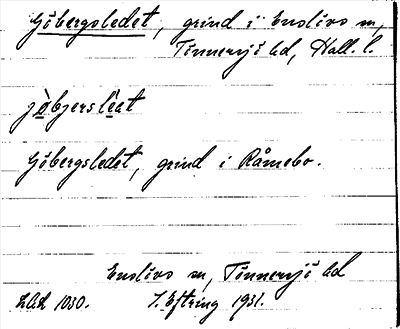 Göbergsledet, grind i Enslövs sn,
Tönnersjö hd, Hall. l.
jöbjersleat
Göbergsledet, grind i Råmebo.
Enslövs sn, Tönnersjö hd
1030. J. Eftring 1931.